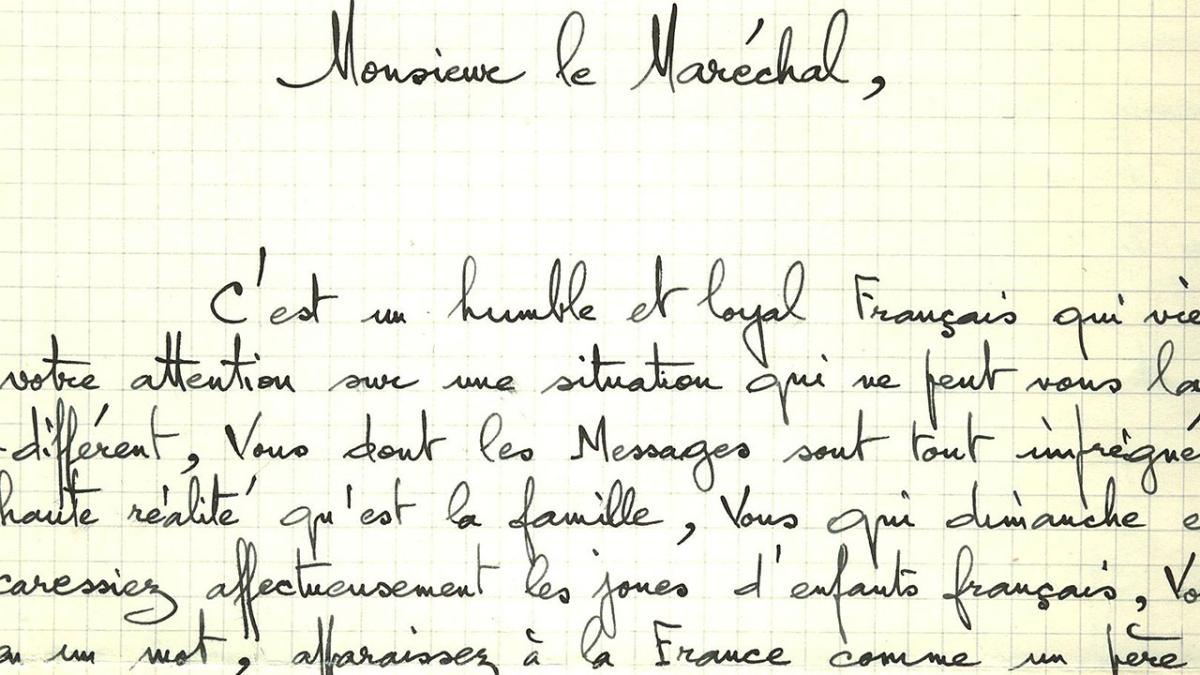 Monsieur le Maréchal,
C'est un humble et loyal Français qui vie
votre attention sur une situation qui ne peut vous la
-différent, Vous dont les Messages sont tout imprégné
haute réalité qu'est la famille, Vous qui dimanche e
caressiez affectueusement les joues d'enfants français, Vo
en un mot, apparaissez à la France comme un père